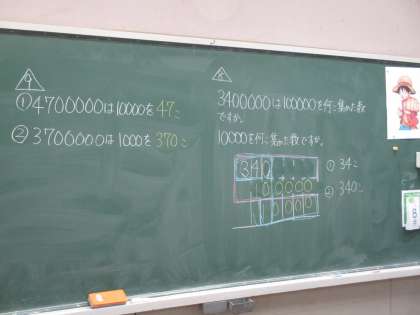 ①4700000は10000を47こ
②3700000は1000を370こ
3400000は100000を何こ集めた数
ですか。
10000を何こ集めた数ですか。
340
100000
10000
① 34こ
② 340こ